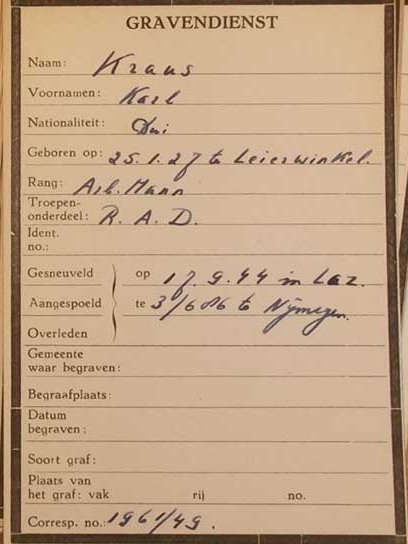 GRAVENDIENST
Naam: Kraus
Voornamen: Karl
Nationaliteit: Dui
Geboren op: 25.1.27 te Leierwinkel.
Rang: Arb. Mann
Troepen-
onderdeel: R. A. D.
Ident.
no.:
Gesneuveld op 17.9.44 in Laz.
Aangespoeld te 3/686 te Nijmegen.
Overleden
Gemeente
waar begraven:
Begraafplaats:
Datum
begraven:
Soort graf:
Plaats van
het graf: vak rij no.
Corresp. no.: 1961/49.